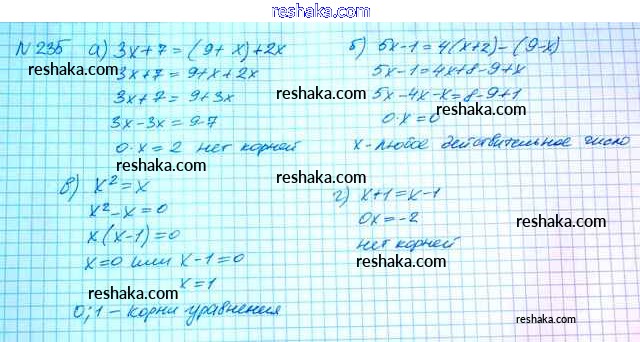 reshaka.com
№ 235 а) 3x+7 = (9+ x)+2x
3x+7 = 9+x+2x
3x+7 = 9+3x
3x-3x = 9-7
0·x = 2 нет корней
б) 5x-1=4(x+2)-(9-x)
5x-1=4x+8-9+x
5x-4x-x=8-9+1
0·x=0
x-любое действительное число
в) x²=x
x²-x=0
x(x-1)=0
x=0 или x-1=0
x=1
0;1 - корни уравнения
г) x+1=x-1
0x=-2
нет корней
reshaka.com
reshaka.com
reshaka.com
reshaka.com
reshaka.com
reshaka.com
reshaka.com
reshaka.com
reshaka.com
reshaka.com
reshaka.com
reshaka.com
reshaka.com